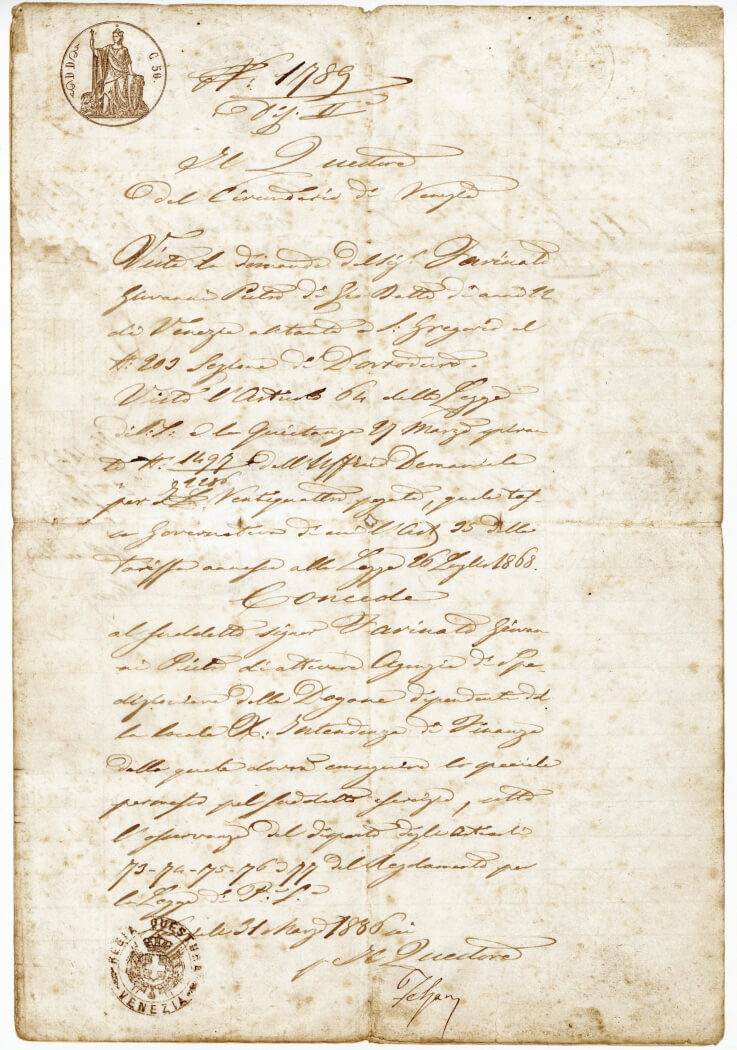 C. 50.
N.° 1789
Div. II
Il Questore
del Circondario di Venezia
Vista la dimanda del Sig.r Farinato
Giovanni Pietro di Gio Batta di anni
di Venezia abitante a S. Gregorio al
N.° 203 Sezione di Dorsoduro.
Visto l'Articolo 64 della Legge
di P. S. e la Quietanza 27 Marzo
N.° 1497 dell'Uffizio Demaniale
1286
per £. Ventiquattro pagate, quale tas-
sa Governativa di cui l'Art 35 della
tariffa annessa alla Legge 26 Luglio 1868.
Concede
al suddetto signor Farinato Giovan
ni Pietro di attivare Agenzia di Spe-
dizioniere della Dogana dipendente dal
la locale R. Intendenza di Finanza
dalla quale dovrà conseguire lo speciale
permesso pel suddetto esercizio, sotto
l'osservanza del disposto degli articoli
73-74-75-76 e 77 del Regolamento per
la Legge di P. S.
li 31 Marzo 1886
Il Questore
REGIA QUESTURA
VENEZIA